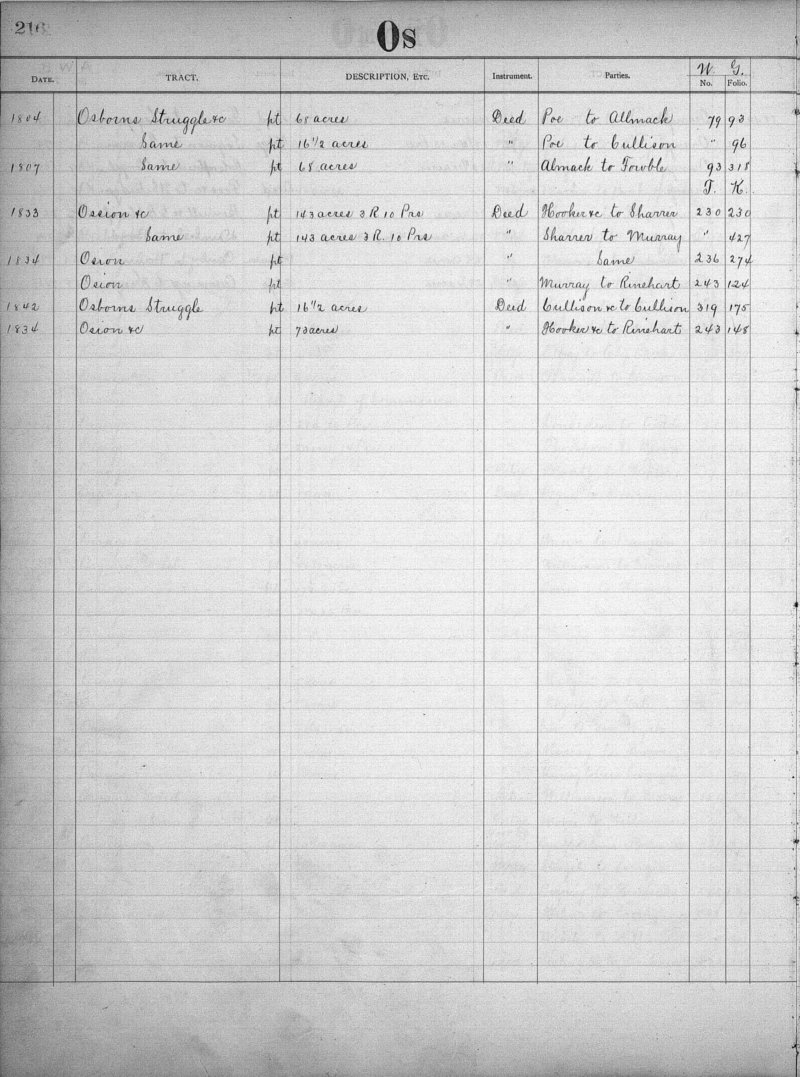 216
Os
W. G.
DATE. TRACT. DESCRIPTION, ETC. Instrument. Parties. No. Folio.
1804 Osborns Struggle &c pt 68 acres Deed Poe to Allmack 79 93
Same pt 16 1/2 acres " Poe to Cullison " 96
1807 Same pt 68 acres " Almack to Fowble 93 318
T. K.
1833 Ossion &c pt 143 acres 3 R 10 Prs Deed Hooker &c to Sharrer 230 230
Same pt 143 acres 3 R. 10 Prs " Sharrer to Murray " 427
1834 Osion pt " Same 236 274
Osion pt " Murray to Rinehart 243 124
1842 Osborns Struggle pt 16 1/2 acres Deed Cullison &c to Cullison 319 175
1834 Osion &c pt 73 acres " Hooker &c to Rinehart 243 148